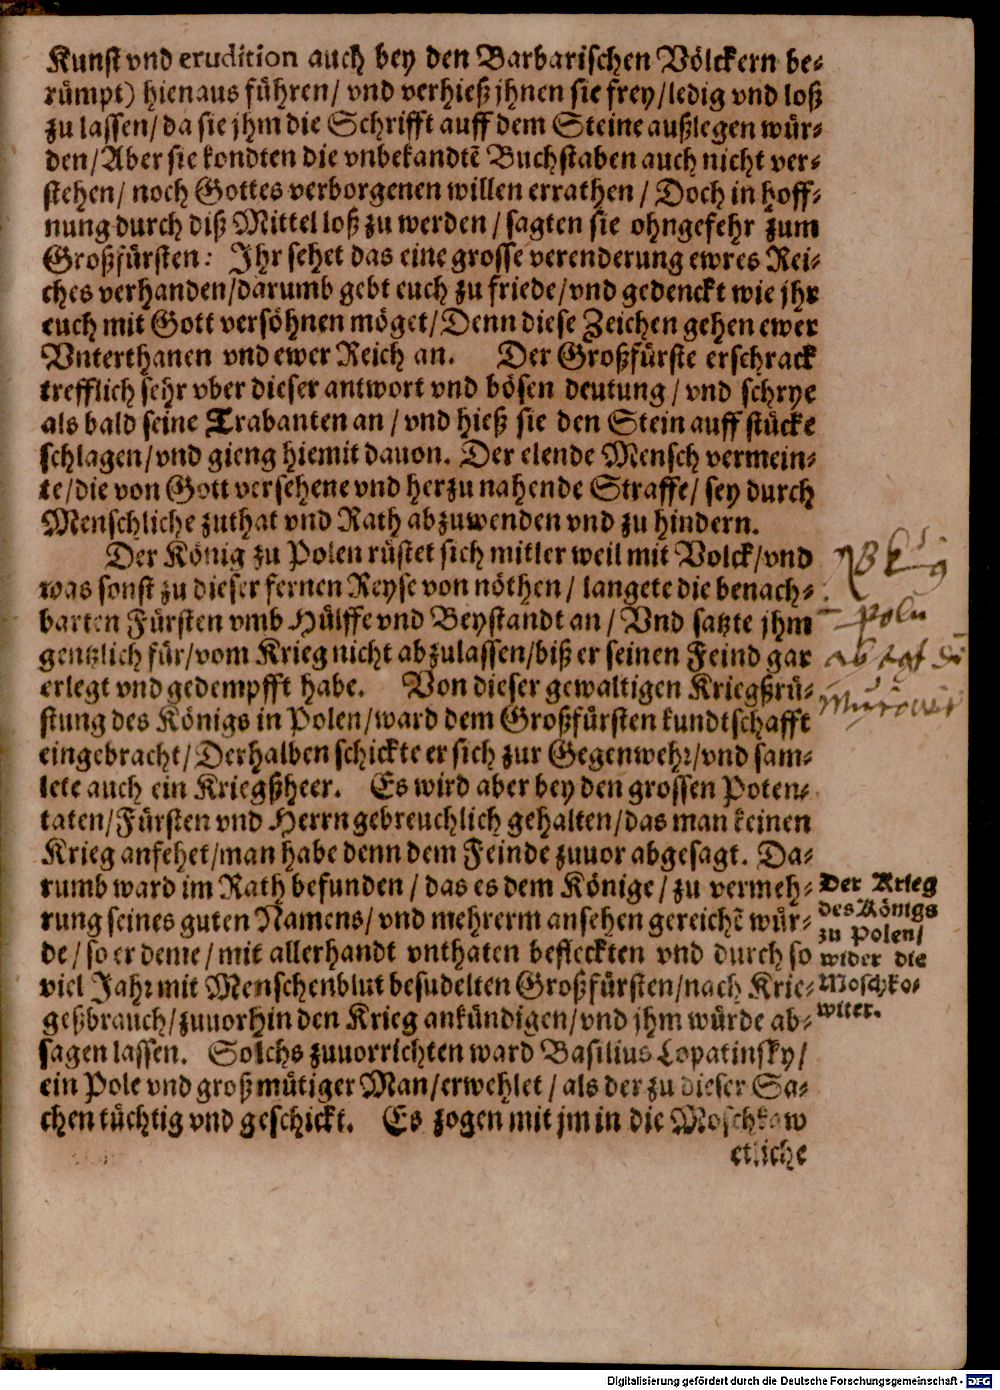 Kunst vnd erudition auch bey den Barbarischen Völckern be-
rümpt) hienaus führen/ vnd verhieß jhnen sie frey/ledig vnd loß
zu lassen/da sie jhm die Schrifft auff dem Steine außlegen wür-
den/Aber sie kondten die vnbekandtē Buchstaben auch nicht ver-
stehen/ noch Gottes verborgenen willen errathen/ Doch in hoff-
nung durch diß Mittel loß zu werden/ sagten sie ohngefehr zum
Großfürsten: Jhr sehet das eine grosse verenderung ewres Rei-
ches verhanden/darumb gebt euch zu friede/vnd gedenckt wie jhr
euch mit Gott versöhnen möget/Denn diese Zeichen gehen ewer
Vnterthanen vnd ewer Reich an. Der Großfürste erschrack
trefflich sehr vber dieser antwort vnd bösen deutung/ vnd schrye
als bald seine Trabanten an/ vnd hieß sie den Stein auff stücke
schlagen/vnd gieng hiemit dauon. Der elende Mensch vermein-
te/die von Gott versehene vnd herzu nahende Straffe/ sey durch
Menschliche zuthat vnd Rath abzuwenden vnd zu hindern.
Der König zu Polen rüstet sich mitler weil mit Volck/vnd
was sonst zu dieser fernen Reyse von nöthen/ langete die benach-
barten Fürsten vmb Hülffe vnd Beystandt an/ Vnd satzte jhm
gentzlich für/vom Krieg nicht abzulassen/biß er seinen Feind gar
erlegt vnd gedempfft habe. Von dieser gewaltigen Kriegßrü-
stung des Königs in Polen/ward dem Großfürsten kundtschafft
eingebracht/Derhalben schickte er sich zur Gegenwehr/vnd sam-
lete auch ein Kriegßheer. Es wird aber bey den grossen Poten-
taten/Fürsten vnd Herrn gebreuchlich gehalten/das man keinen
Krieg anfehet/man habe denn dem Feinde zuuor abgesagt. Da-
rumb ward im Rath befunden/ das es dem Könige/ zu vermeh-
rung seines guten Namens/ vnd mehrerm ansehen gereichē wür-
de/ so er deme/ mit allerhandt vnthaten befleckten vnd durch so
viel Jahr mit Menschenblut besudelten Großfürsten/nach Krie-
geßbrauch/zuuorhin den Krieg ankündigen/vnd jhm würde ab-
sagen lassen. Solchs zuuorrichten ward Basilius Lopatinsky/
ein Pole vnd großmütiger Man/erwehlet/ als der zu dieser Sa-
chen tüchtig vnd geschickt. Es zogen mit jm in die Moschkaw
etliche
Poln
Der Krieg
des Königs
zu Polen/
wider die
Moschko-
witer.
Digitalisierung gefördert durch die Deutsche Forschungsgemeinschaft - DFG